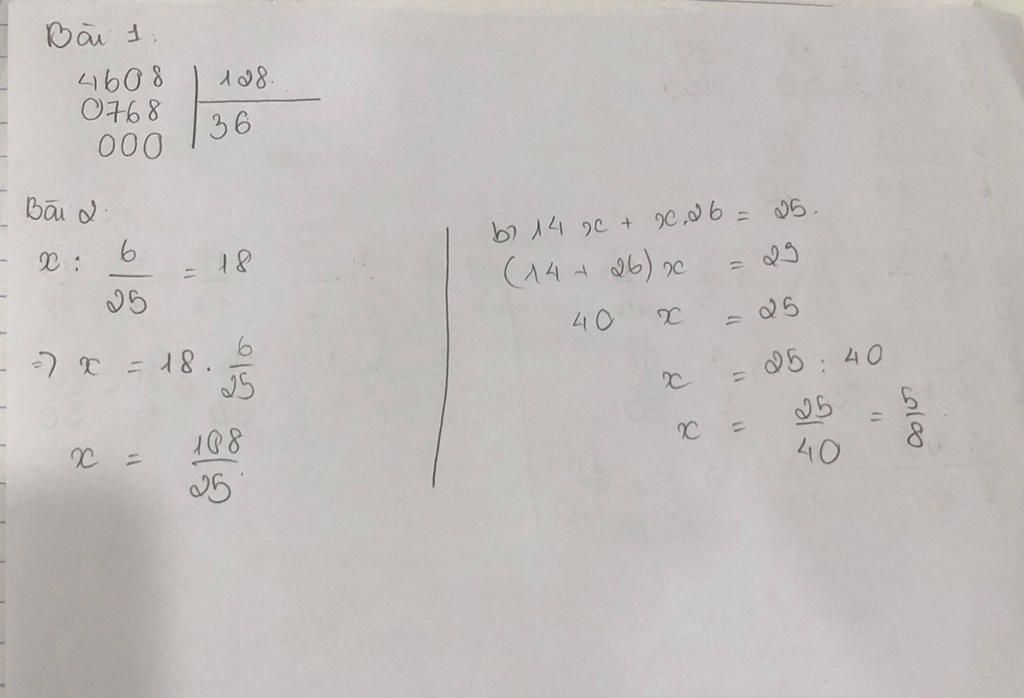 Bài 1:
4608 | 128.
0768 | 36
000
Bài 2:
x : 6/25 = 18
=> x = 18 . 6/25
x = 108/25.
b) 14 x + x.26 = 25.
(14 + 26) x = 25
40 x = 25
x = 25 : 40
x = 25/40 = 5/8.